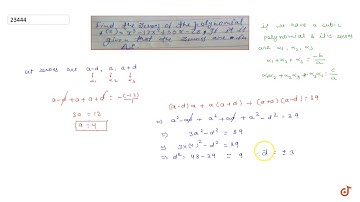 23444
Find the zeroes of the polynomial
given that the zeroes are in
A.P.
if we have a cubic
polynomial & its zeros
are α₁, α₂, α₃
α₁ + α₂ + α₃ = -b/a
α₁α₂ + α₂α₃ + α₃α₁ = c/a
let zeros are a-d, a, a+d
α₁ α₂ α₃
a-d + a + a+d = -(-12)/1
3a = 12
a = 4
(a-d)a + a(a+d) + (a+d)(a-d) = 39
⇒ a² - ad + a² + ad + a² - d² = 39
⇒ 3a² - d² = 39
⇒ 3×(4)² - d² = 39
⇒ d² = 48 - 39 = 9 ∴ d = ± 3
doubtnut